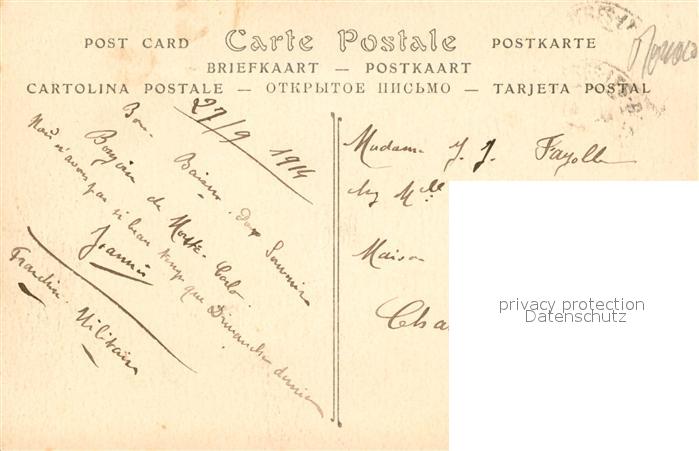 POST CARD Carte Postale POSTKARTE
BRIEFKAART — POSTKAART
CARTOLINA POSTALE — ОТКРЫТОЕ ПИСЬМО — TARJETA POSTAL
Monaco
27/9 1914
Bons Baisers. Doux Souvenir
Bonjour de Monte-Carlo.
Nous n'avons pas si beau temps que Dimanche dernier
Franchise Militaire
Madame J. J. Fayolle
chez Mlle
Maison
Cha
privacy protection
Datenschutz